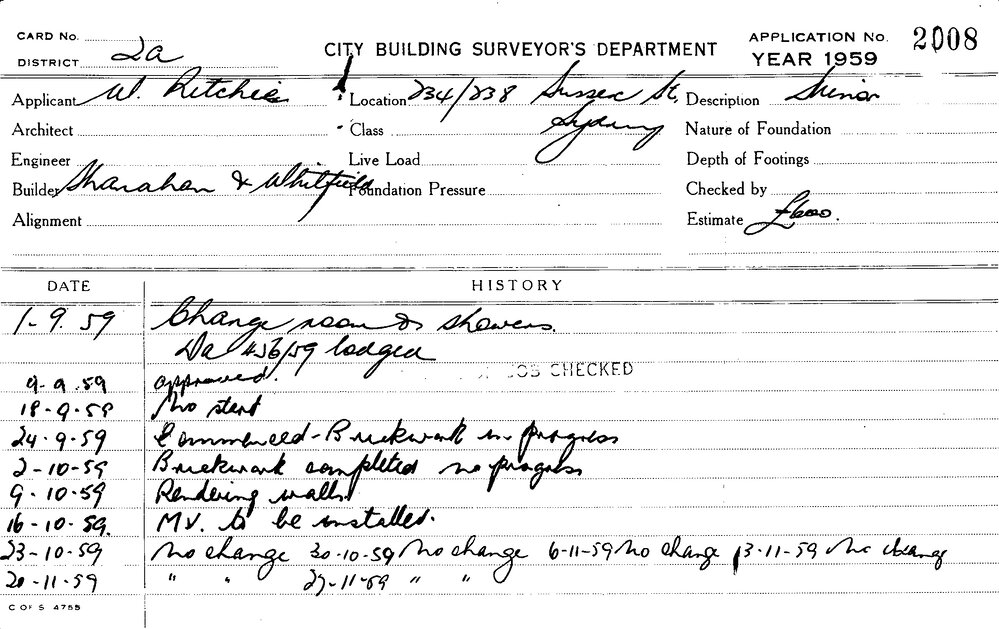 CARD No.
DISTRICT 2a
CITY BUILDING SURVEYOR'S DEPARTMENT
APPLICATION No. 2008
YEAR 1959
Applicant W. Ritchie
Location 234/238 Sussex St,
Description Minor
Architect
Class Sydney
Nature of Foundation
Engineer
Live Load
Depth of Footings
Builder Shanahan & Whitfield
Foundation Pressure
Checked by
Alignment
Estimate
DATE HISTORY
1-9.59 Change room & showers.
Da 456/59 lodged
9-9.59 approved. JOB CHECKED
18-9-59 No start
24-9-59 Commenced - Brickwork in progress
2-10-59 Brickwork completed no progress
9-10-59 Rendering walls
16-10-59. M.V. to be installed.
23-10-59 No change 30-10-59 No change 6-11-59 No change 13-11-59 No change
20-11-59 " " 27-11-59 " "
C OF S 4755